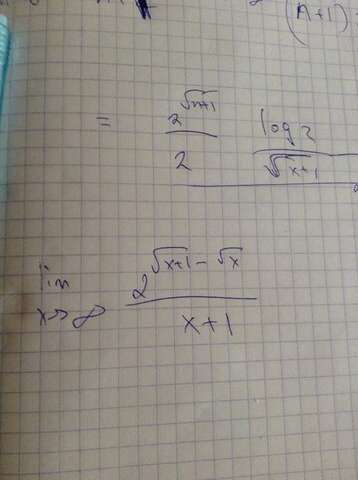 (n+1)
= 2^√(x+1) / 2 log 2 / √(x+1)
lim x→∞ 2^(√(x+1) − √x) / (x+1)